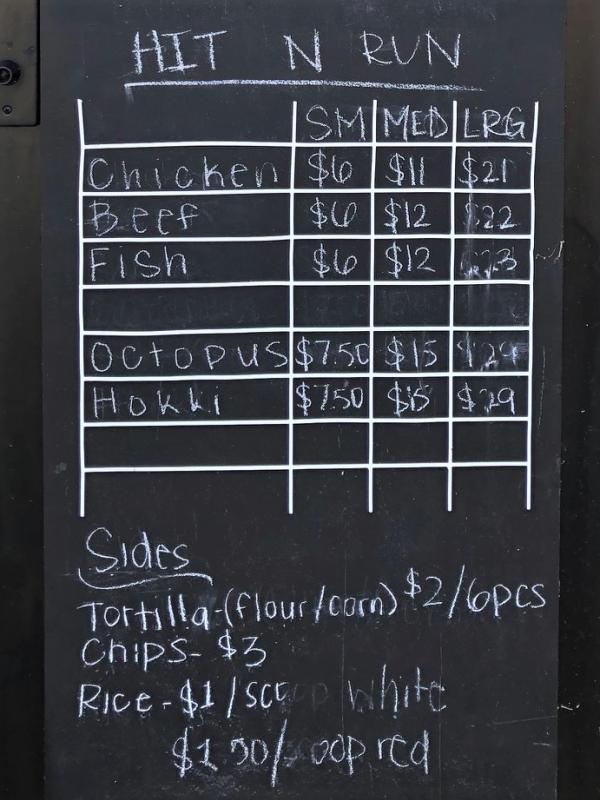 HIT N RUN
SM MED LRG
Chicken $6 $11 $21
Beef $6 $12 $22
Fish $6 $12 $23
Octopus $7.50 $15
Hokki $7.50 $15 $29
Sides
Tortilla-(flour/corn) $2/6pcs
Chips- $3
Rice - $1/scoop white
$1.50/scoop red